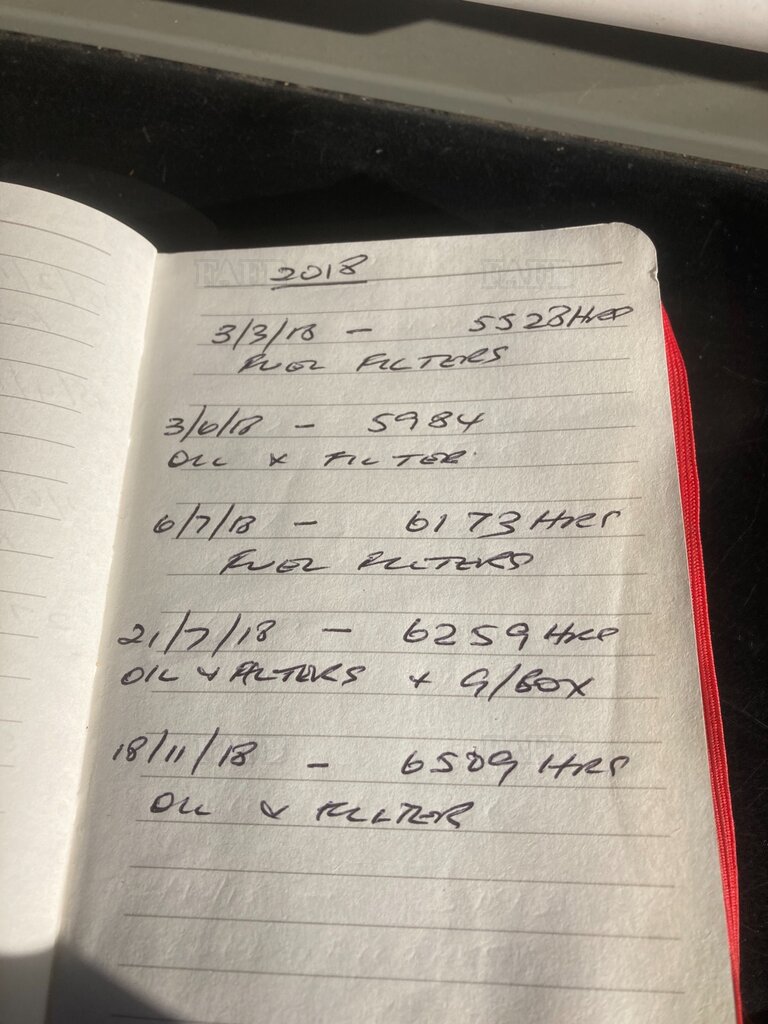 2018
3/3/18 - 5528 HRS
FUEL FILTERS
3/6/18 - 5984
OIL & FILTER
6/7/18 - 6173 HRS
FUEL FILTERS
21/7/18 - 6259 HRS
OIL & FILTERS + G/BOX
18/11/18 - 6509 HRS
OIL & FILTER